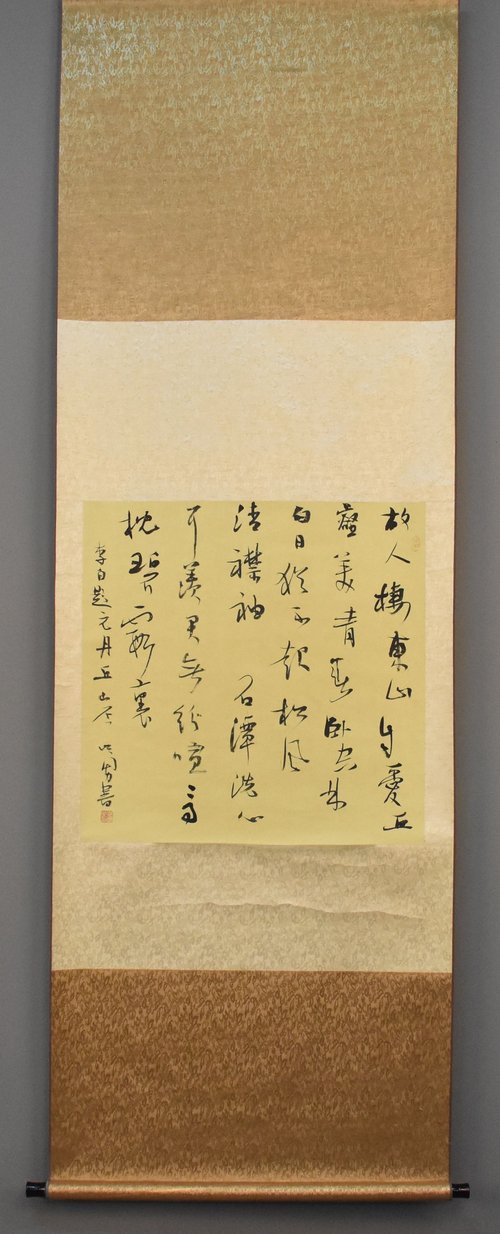 故人棲東山自愛丘
壑美青春臥空林
白日猶不起松風
清襟袖石潭洗心
耳羨君無紛喧高
枕碧霞裏
李白題元丹丘山居 書